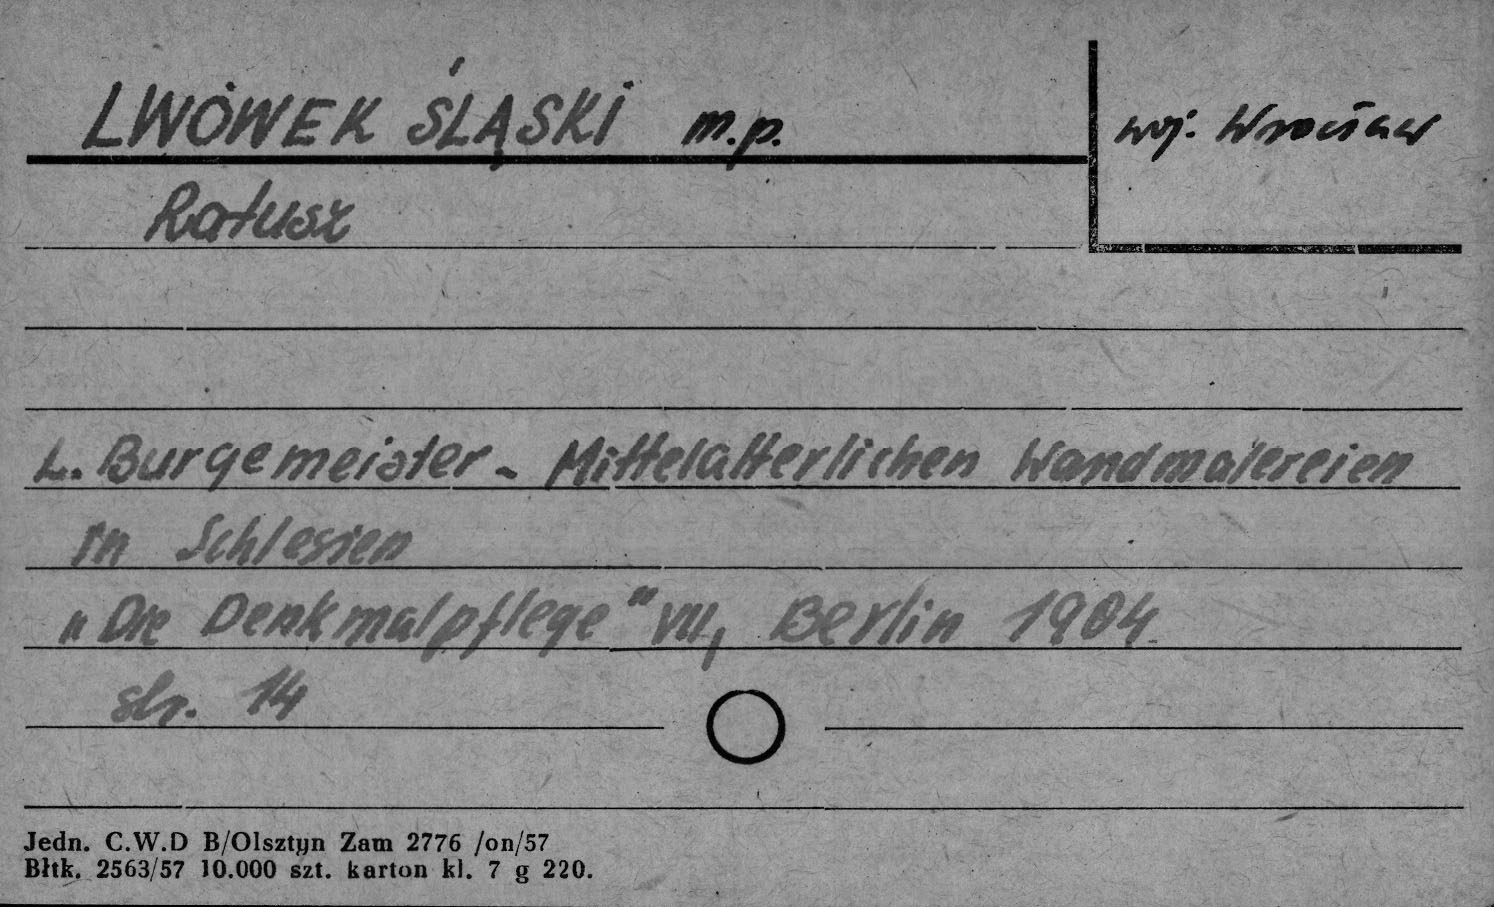 LWÓWEK ŚLĄSKI m.p.
woj. Wrocław
Ratusz
L. Burgemeister - Mittelalterlichen Wandmalereien
in Schlesien
„Die Denkmalpflege" VII, Berlin 1904
str. 14
Jedn. C.W.D B/Olsztyn Zam 2776 /on/57
Błtk. 2563/57 10.000 szt. karton kl. 7 g 220.